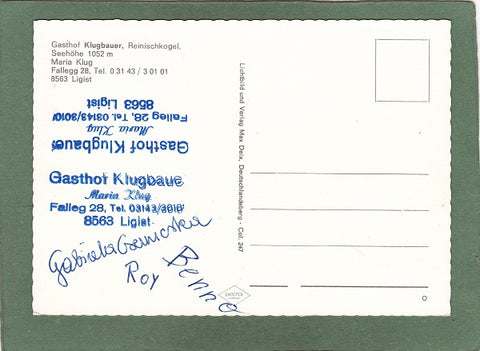 Gasthof Klugbauer, Reinischkogel.
Seehöhe 1052 m
Maria Klug
Fallegg 28, Tel. 0 31 43 / 3 01 01
8563 Ligist
Gasthof Klugbauer
Maria Klug
Falleg 28, Tel. 03143/3010
8563 Ligist
Gasthof Klugbaue
Maria Klug
Falleg 28, Tel. 03143/3010
8563 Ligist
Gabriela
Roy
Benno
Lichtbild und Verlag Max Deix, Deutschlandsberg - Col. 247
O